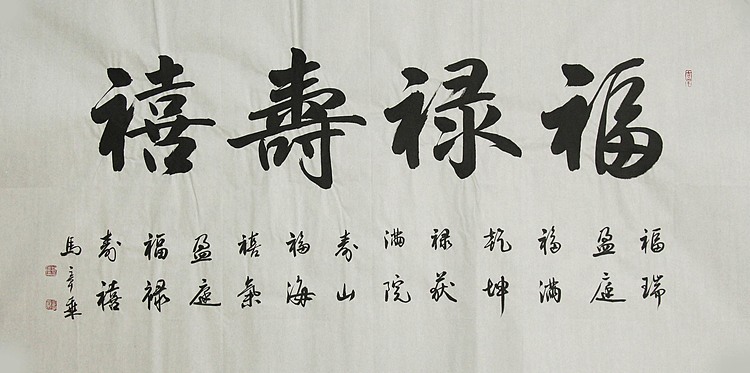 福禄壽禧
福瑞
盈庭
福满
乾坤
禄获
满院
寿山
福海
禧氣
盈庭
福禄
寿禧
馬